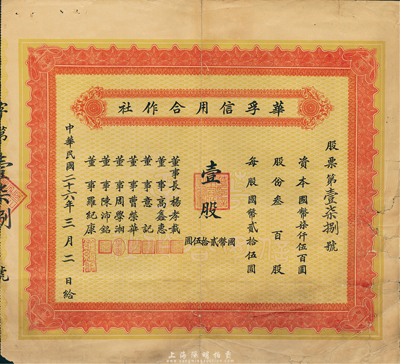 社作合用信孚華
股票第壹柒捌號
資本國幣柒仟伍百圓
股份叁百股
每股國幣貳拾伍圓
壹股
圓伍拾貳幣國
董事長楊孝哉
董事高鑫惠
董事意記
董事曹榮華
董事周學湘
董事陳沛銘
董事羅紀康
中華民國二十六年三月二日給
字第壹柒捌號
上海陽明拍賣